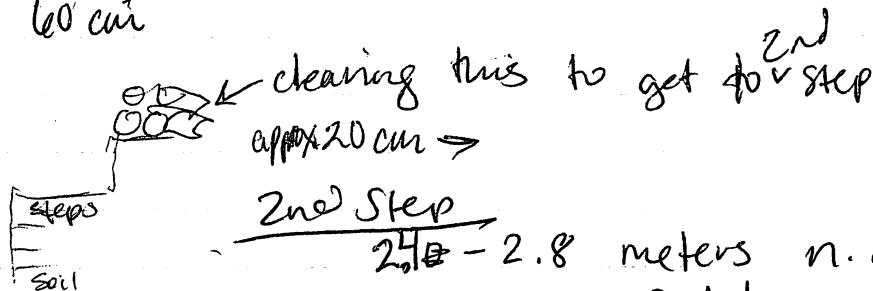 60 cm
clearing this to get to 2nd step
approx 20 cm →
steps
2nd Step
2.4 - 2.8 meters n.
Soil